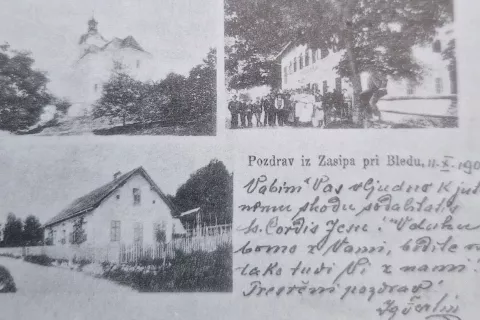 Pozdrav iz Zasipa pri Bledu, 11. X. 190
Vabim Vas vljudno k jut
nemu shodu sodalitati
s. Cordis Jesu! V duhu
bomo z Vami, bodite
tako tudi Vi z nami!
Presrčni pozdrav!